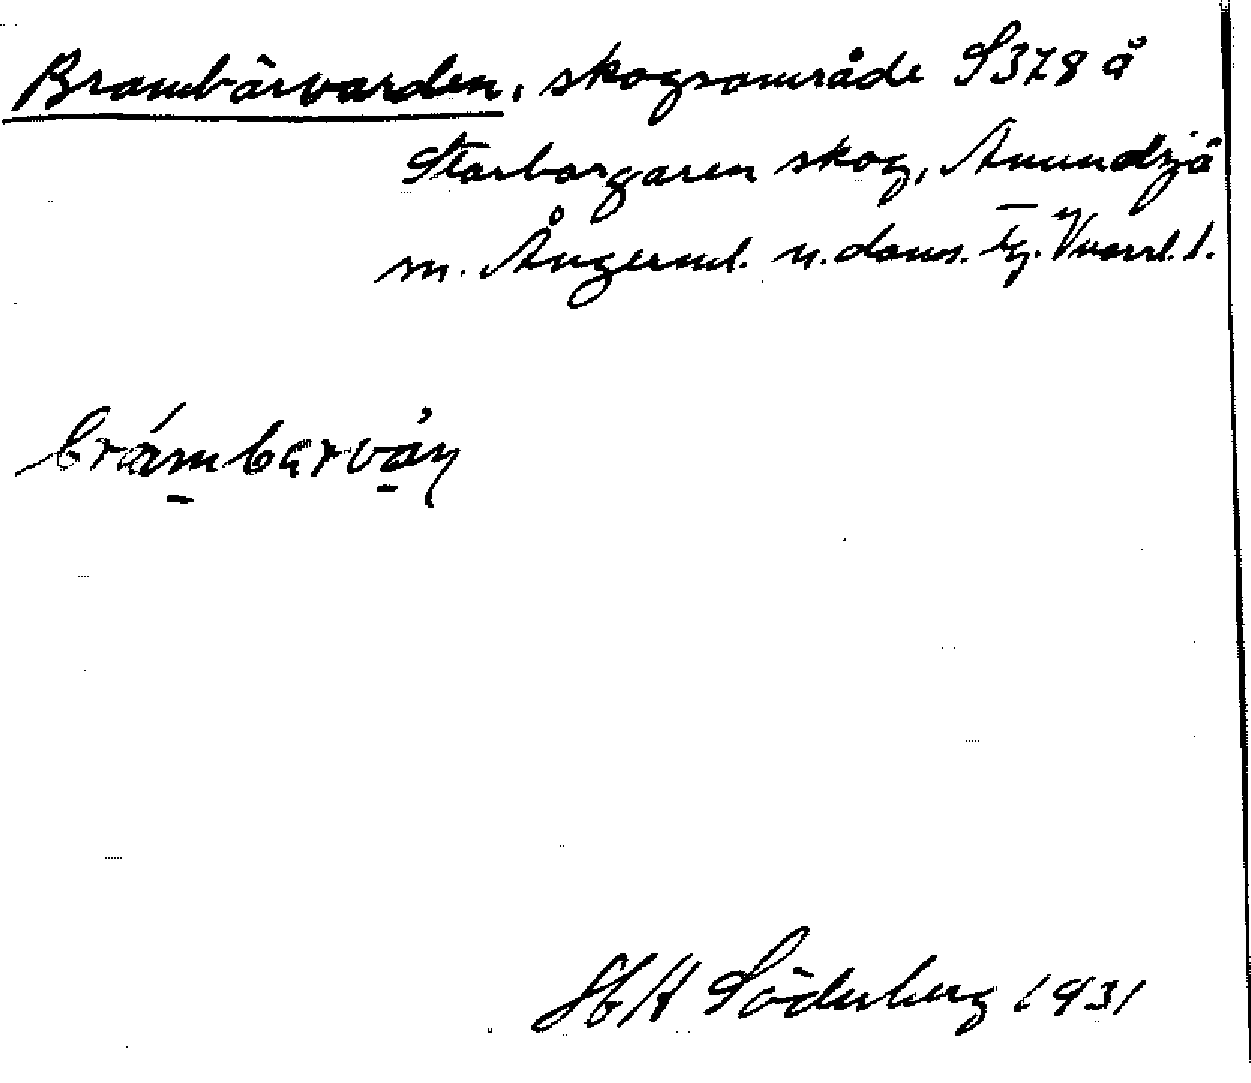 Brambärvarden, skogsområde S378 å
Storborgaren skog, Anundsjö
sn. Ångerml. n. doms. tg. Vvarl. 1.
brámbarván
H H Söderberg 1931